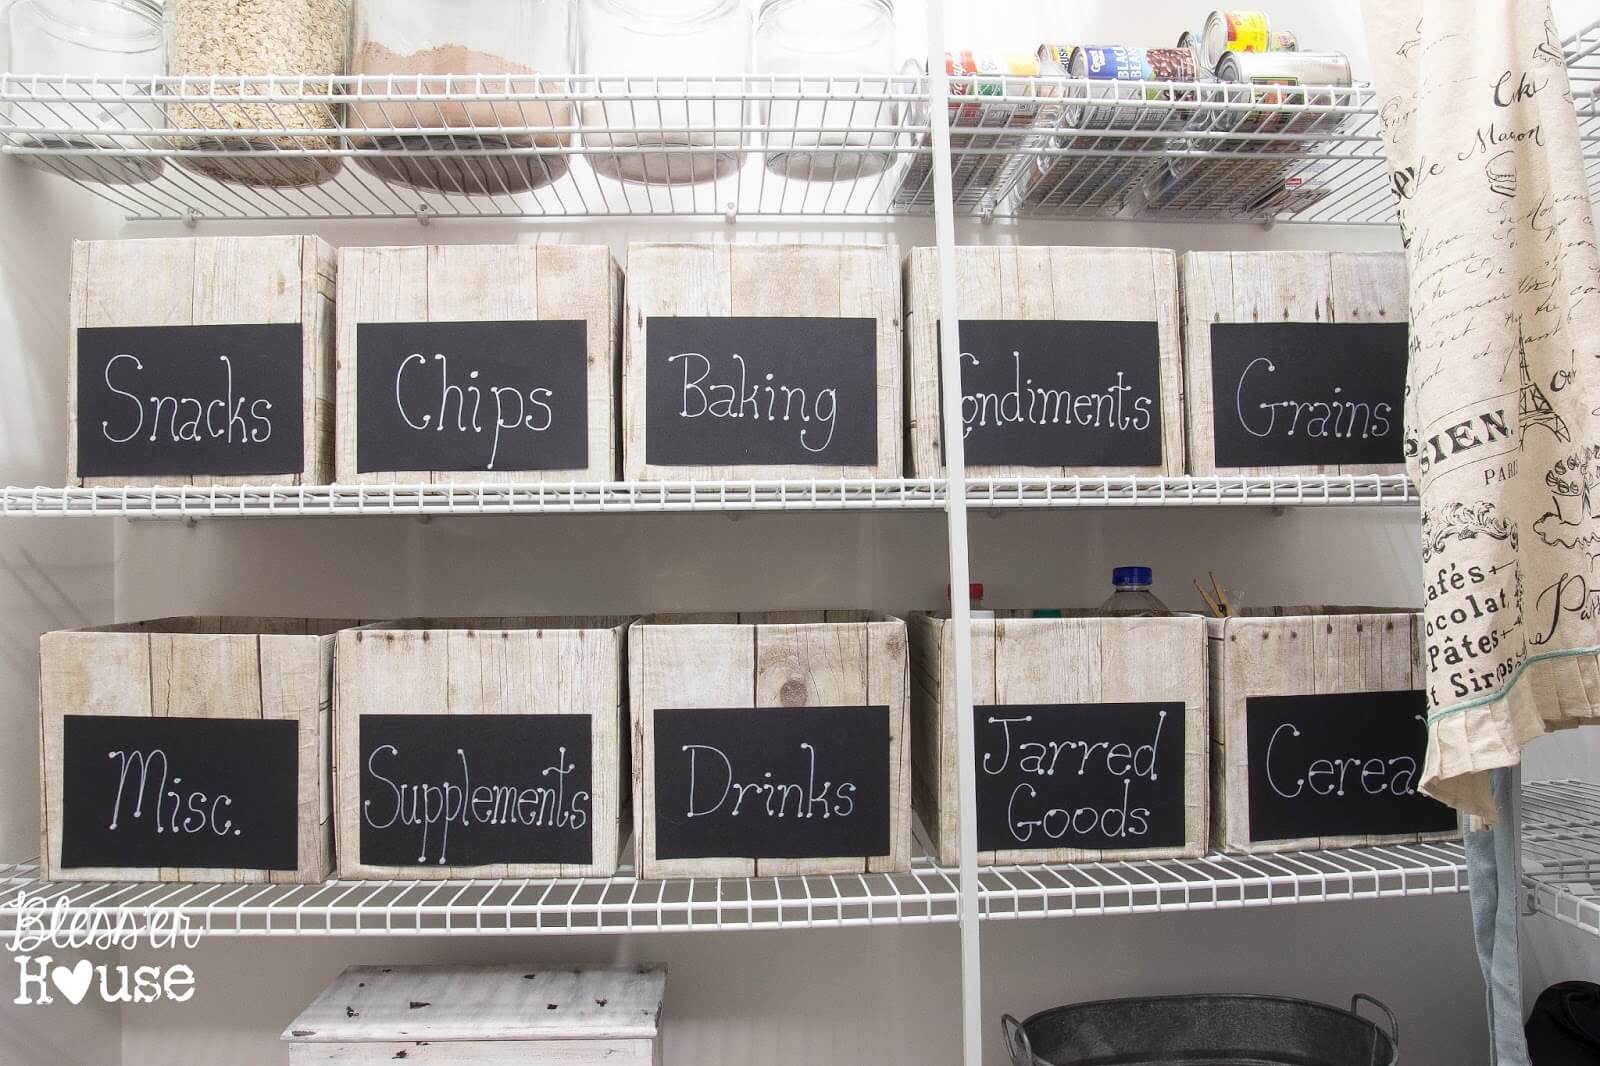 BLACK
BEANS
Snacks
Chips
Baking
Condiments
Grains
Misc.
Supplements
Drinks
Jarred
Goods
Cereal
Cake
Macon
SIEN
PARIS
afés
ocolat
Pâtes
t Sirops
Bless'er
House